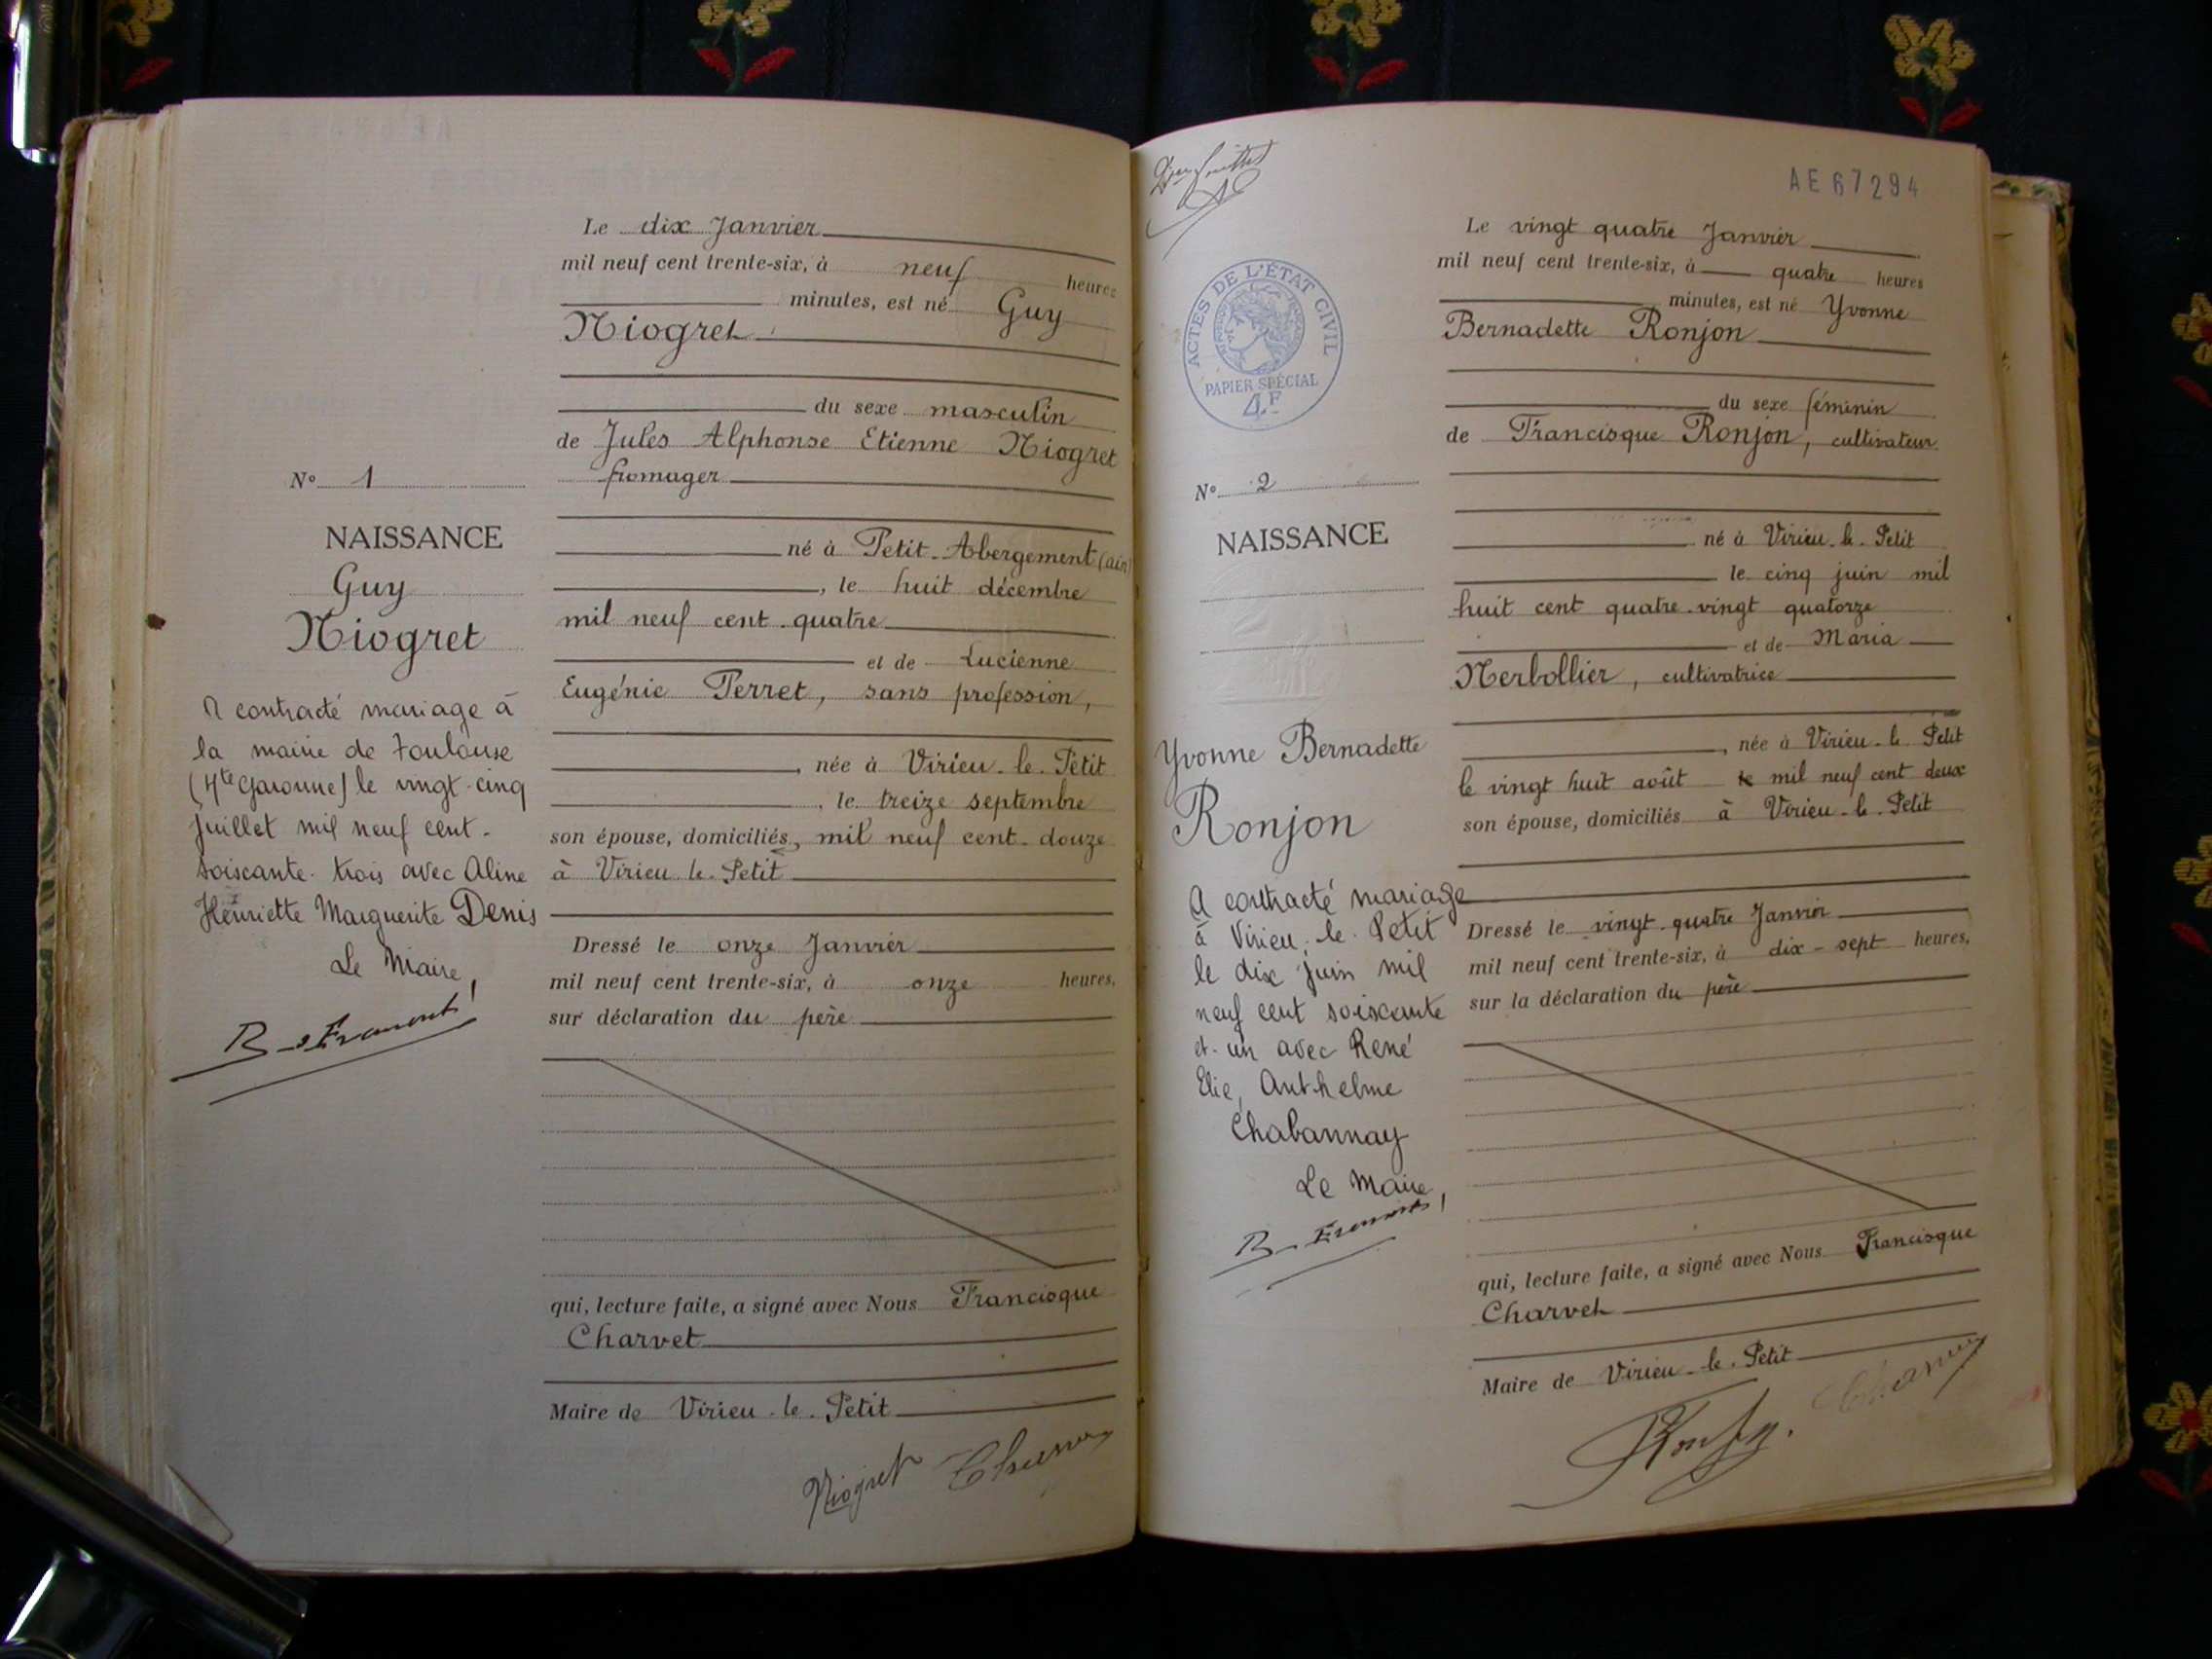 Le dix Janvier
mil neuf cent trente-six, à neuf heures
minutes, est né Guy
Niogret
du sexe masculin
de Jules Alphonse Etienne Niogret
fromager
né à Petit-Abergement (ain)
, le huit décembre
mil neuf cent quatre
et de Lucienne
Eugénie Perret, sans profession,
, née à Virieu-le-Petit
, le treize septembre
son épouse, domiciliés, mil neuf cent douze
à Virieu-le-Petit
Dressé le onze Janvier
mil neuf cent trente-six, à onze heures,
sur déclaration du père
qui, lecture faite, a signé avec Nous Francisque
Charvet
Maire de Virieu-le-Petit
Niogret
N° 1
NAISSANCE
Guy
Niogret
A contracté mariage à
la mairie de Toulouse
(Hte Garonne) le vingt-cinq
juillet mil neuf cent-
soixante-trois avec Aline
Henriette Marguerite Denis
Le Maire,
AE67294
ACTES DE L'ÉTAT CIVIL
PAPIER SPÉCIAL
4F
N° 2
NAISSANCE
Yvonne Bernadette
Ronjon
A contracté mariage
à Virieu-le-Petit
le dix juin mil
neuf cent soixante
et-un avec René
Elie, Anthelme
Chabannay
Le Maire,
Le vingt quatre Janvier
mil neuf cent trente-six, à quatre heures
minutes, est né Yvonne
Bernadette Ronjon
du sexe féminin
de Francisque Ronjon, cultivateur
né à Virieu-le-Petit
le cinq juin mil
huit cent quatre-vingt quatorze
et de Maria
Nerbollier, cultivatrice
, née à Virieu-le-Petit
le vingt huit août mil neuf cent deux
son épouse, domiciliés à Virieu-le-Petit
Dressé le vingt-quatre Janvier
mil neuf cent trente-six, à dix-sept heures,
sur la déclaration du père
qui, lecture faite, a signé avec Nous Francisque
Charvet
Maire de Virieu-le-Petit